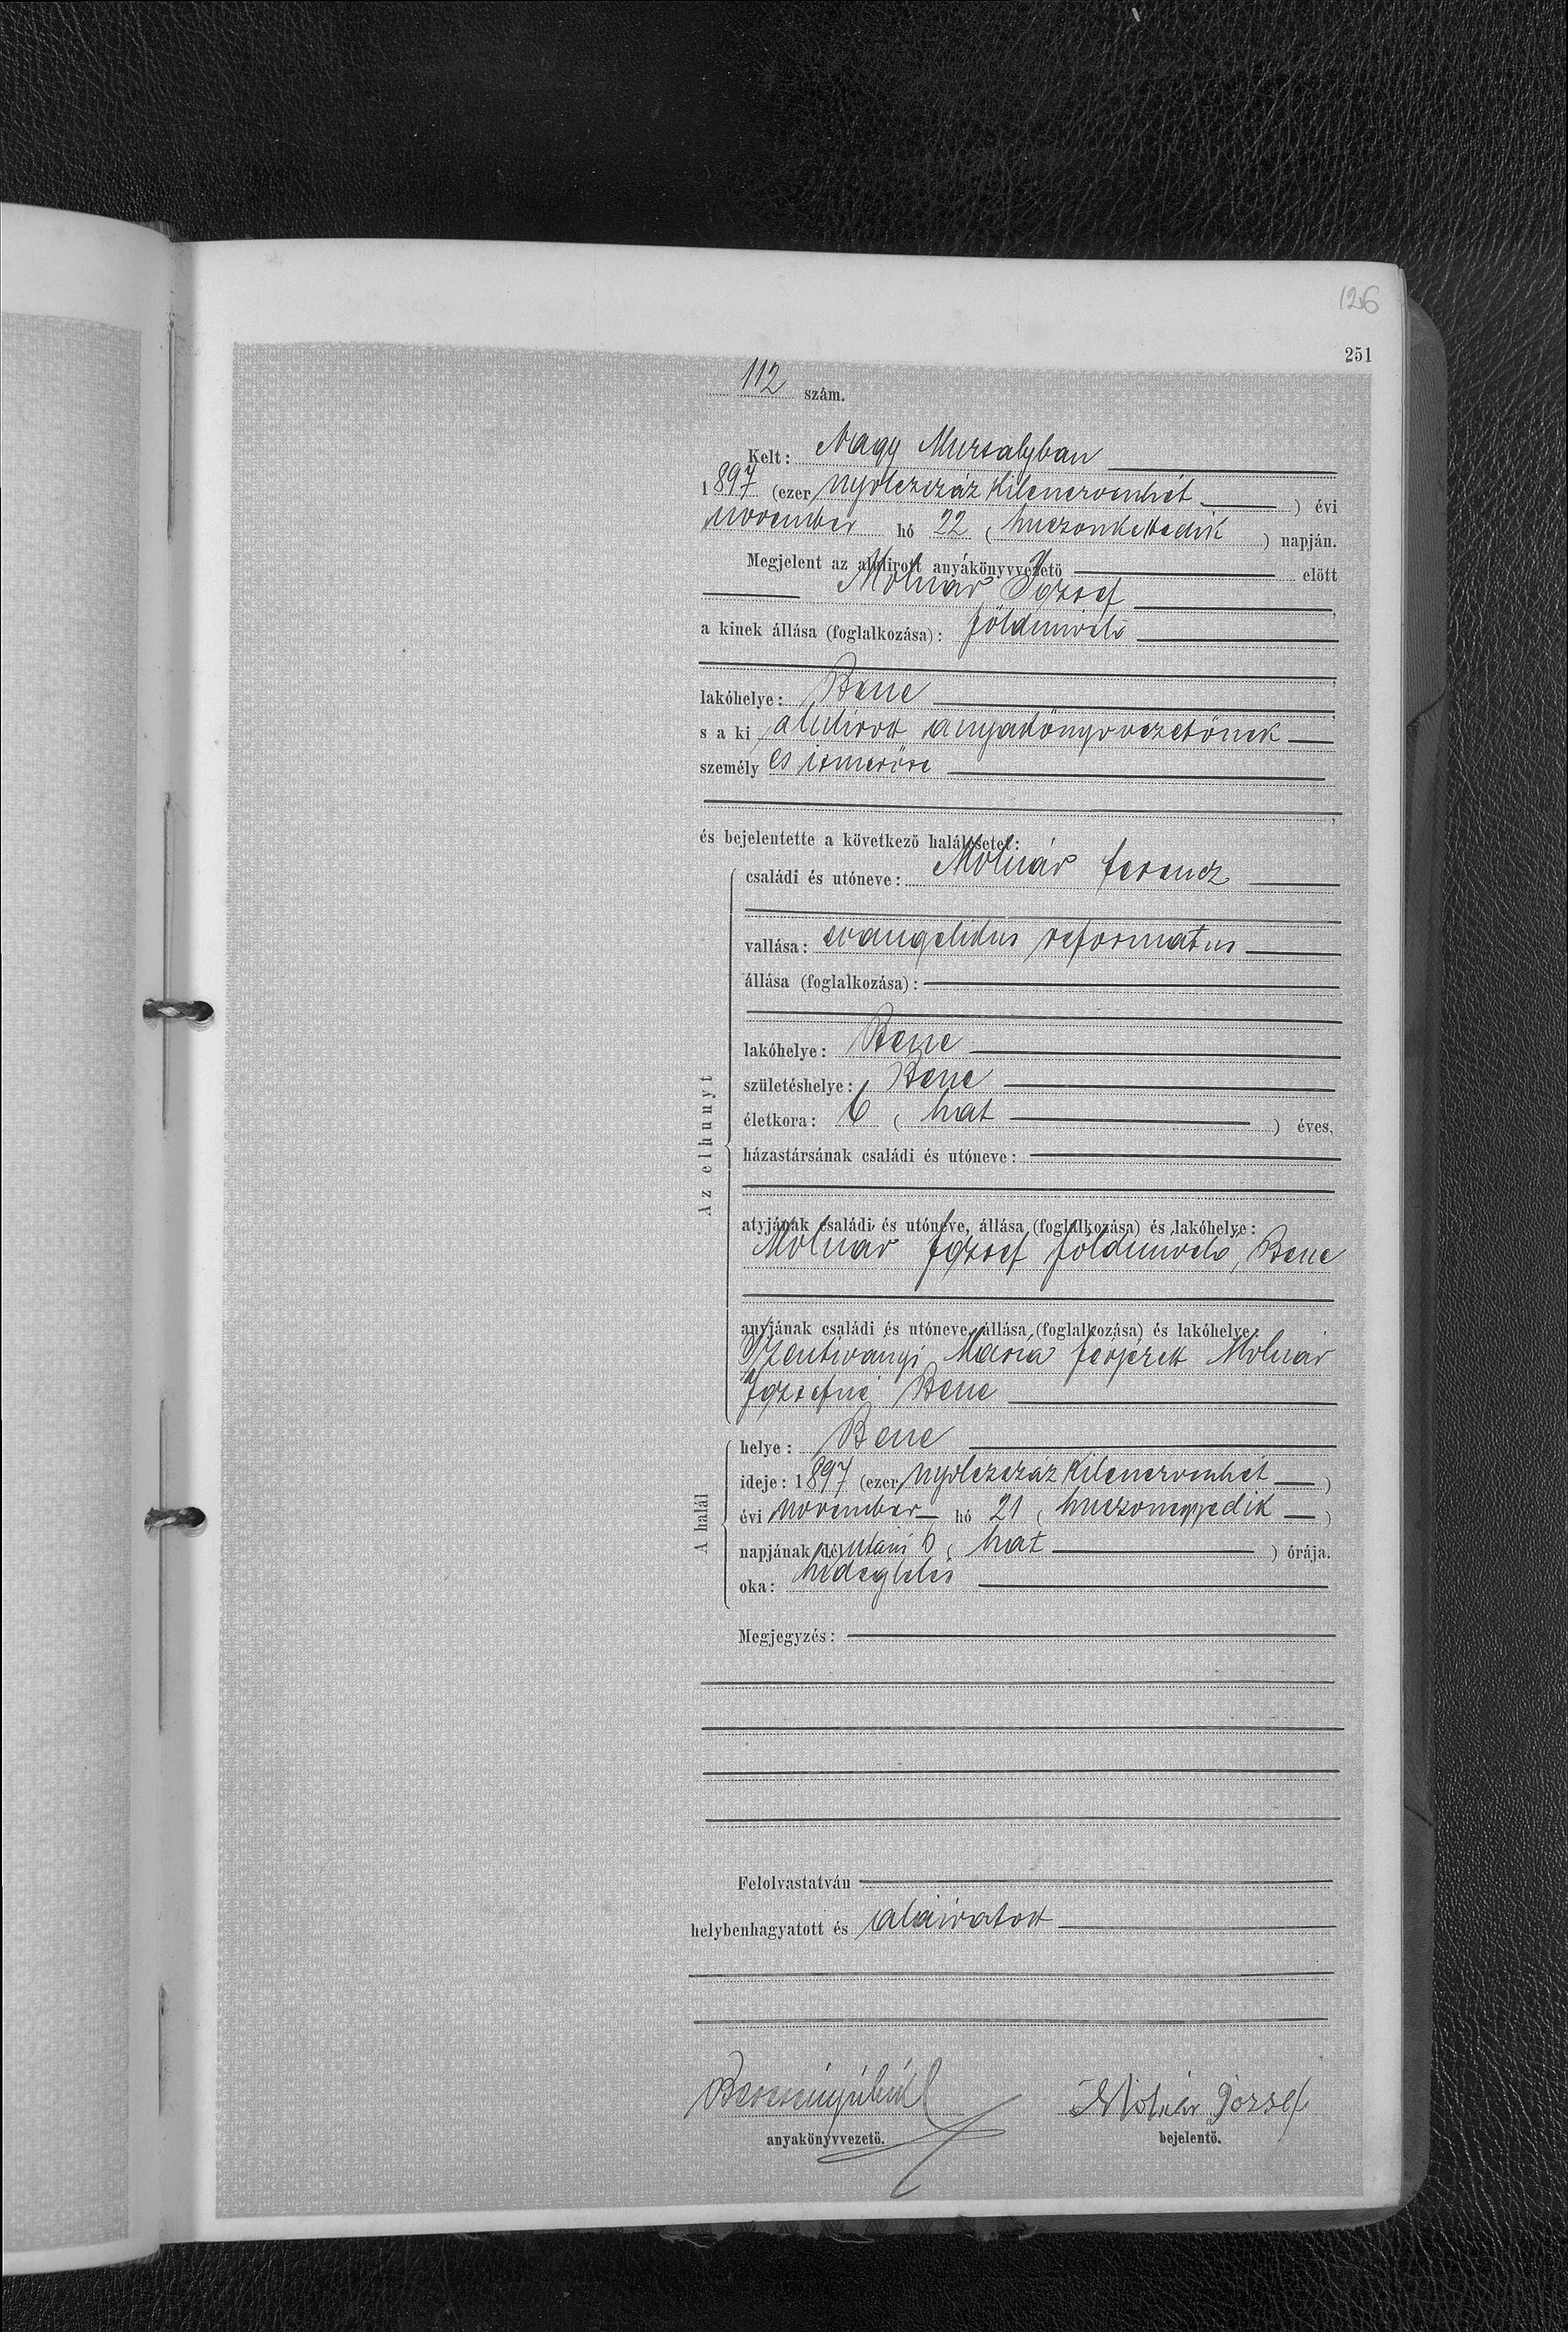 126
251
112 szám.
Kelt: Nagy Muzsalyban
1897 (ezer nyolczszáz kilenczvenhét) évi
november hó 22 (huszonkettedik) napján.
Megjelent az alulirott anyakönyvvezető előtt
Molnár József,
a kinek állása (foglalkozása): földmivelő
lakóhelye: Bene,
s a ki alulirott anyakönyvvezetőnek
személyes ismerőse
és bejelentette a következő halálesetet:
Az elhunyt
családi és utóneve: Molnár Ferencz
vallása: evangelikus reformatus
állása (foglalkozása):
lakóhelye: Bene
születéshelye: Bene
életkora: 6 (hat) éves,
házastársának családi és utóneve:
atyjának családi és utóneve, állása (foglalkozása) és lakóhelye:
Molnár József földmivelő, Bene
anyjának családi és utóneve, állása (foglalkozása) és lakóhelye:
Szentiványi Mária férjezett Molnár
Józsefné Bene
A halál
helye: Bene
ideje: 1897 (ezer nyolczszáz kilenczvenhét)
évi november hó 21 (huszonegyedik)
napjának délutáni 6 (hat) órája.
oka: hideglelés
Megjegyzés:
Felolvastatván
helybenhagyatott és aláiratott
Molnár József
anyakönyvvezető. bejelentő.